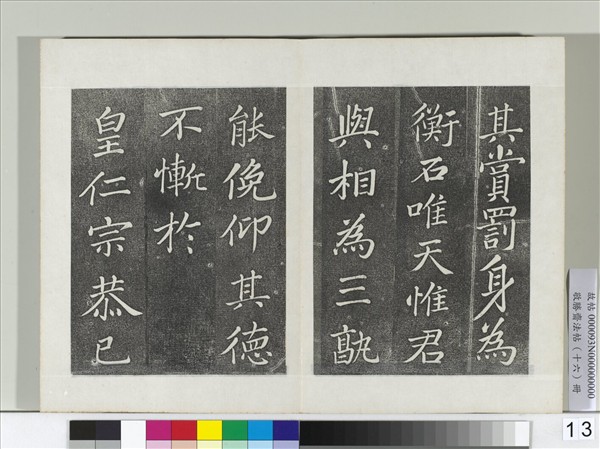 其賞罰身為
衡石唯天惟君
與相為三孰
能俛仰其德
不慚於
皇仁宗恭己
故帖000093N000000000
敬勝齋法帖（十六）冊
13